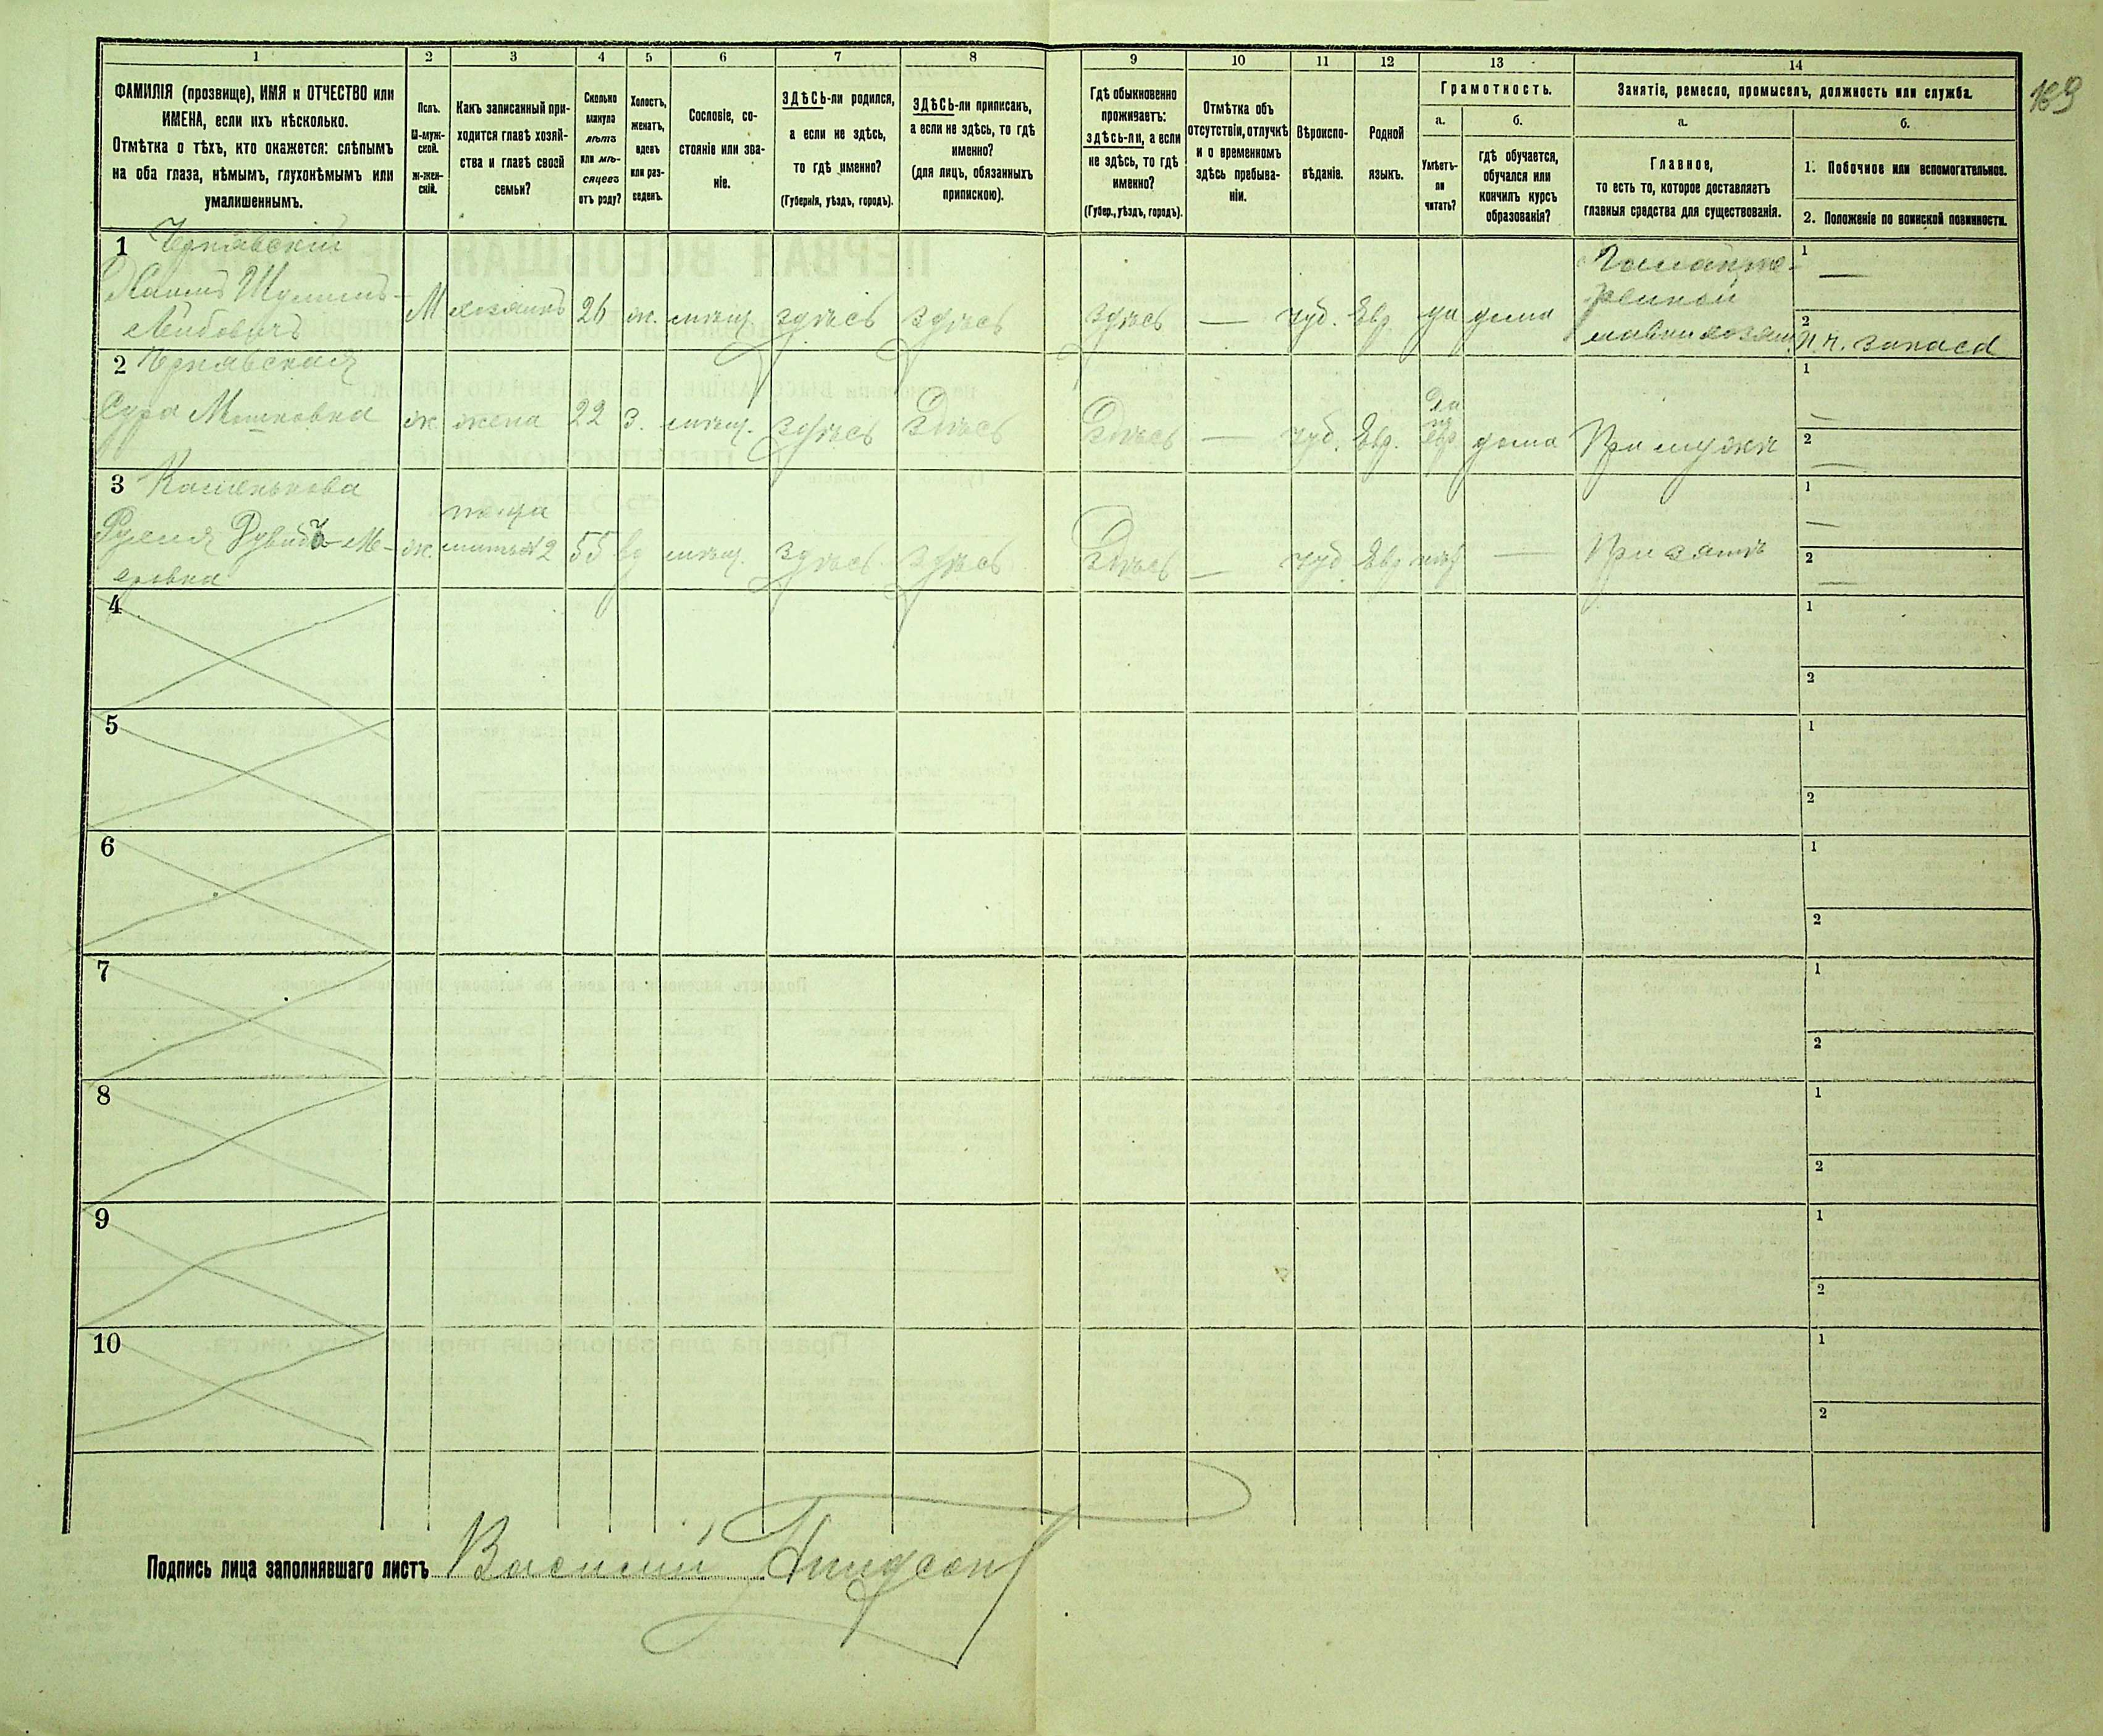 169
1 2 3 4 5 6 7 8 9 10 11 12 13 14
ФАМИЛІЯ (прозвище), ИМЯ и ОТЧЕСТВО или
ИМЕНА, если ихъ нѣсколько.
Отмѣтка о тѣхъ, кто окажется: слѣпымъ
на оба глаза, нѣмымъ, глухонѣмымъ или
умалишеннымъ.
Полъ.
М-муж-
ской.
ж-жен-
скій.
Какъ записанный при-
ходится главѣ хозяй-
ства и главѣ своей
семьи?
Сколько
минуло
лѣтъ
или мѣ-
сяцевъ
отъ роду?
Холостъ,
женатъ,
вдовъ
или раз-
веденъ.
Сословіе, со-
стояніе или зва-
ніе.
ЗДѢСЬ-ли родился,
а если не здѣсь,
то гдѣ именно?
(Губернія, уѣздъ, городъ).
ЗДѢСЬ-ли приписанъ,
а если не здѣсь, то гдѣ
именно?
(для лицъ, обязанныхъ
припискою).
Гдѣ обыкновенно
проживаетъ:
здѣсь-ли, а если
не здѣсь, то гдѣ
именно?
(Губер., уѣздъ, городъ).
Отмѣтка объ
отсутствіи, отлучкѣ
и о временномъ
здѣсь пребыва-
ніи.
Вѣроиспо-
вѣданіе.
Родной
языкъ.
Грамотность.
а.
Умѣетъ-
ли
читать?
б.
гдѣ обучается,
обучался или
кончилъ курсъ
образованія?
Занятіе, ремесло, промыселъ, должность или служба.
а.
Главное,
то есть то, которое доставляетъ
главныя средства для существованія.
б.
1. Побочное или вспомогательное.
2. Положеніе по воинской повинности.
1 Чернявскій
Хаимъ Шулимъ-
Лейбовичъ
М хозяинъ 26 ж. мѣщ. здѣсь здѣсь здѣсь — іуд. Евр да дома
лавки хозяинъ
1 —
2 запаса
2 Чернявская
Сура Мошковна ж. жена 22 з. мѣщ. здѣсь Здѣсь Здѣсь — іуд. Евр. да
евр. дома При мужѣ
1 —
2 —
3
Рувинъ-Ме-
еровна
ж. теща 55 вд мѣщ. здѣсь здѣсь Здѣсь — іуд Евр нѣтъ — При зятѣ
1 —
2 —
4 1 2
5 1 2
6 1 2
7 1 2
8 1 2
9 1 2
10 1 2
Подпись лица заполнявшаго листъ Василій